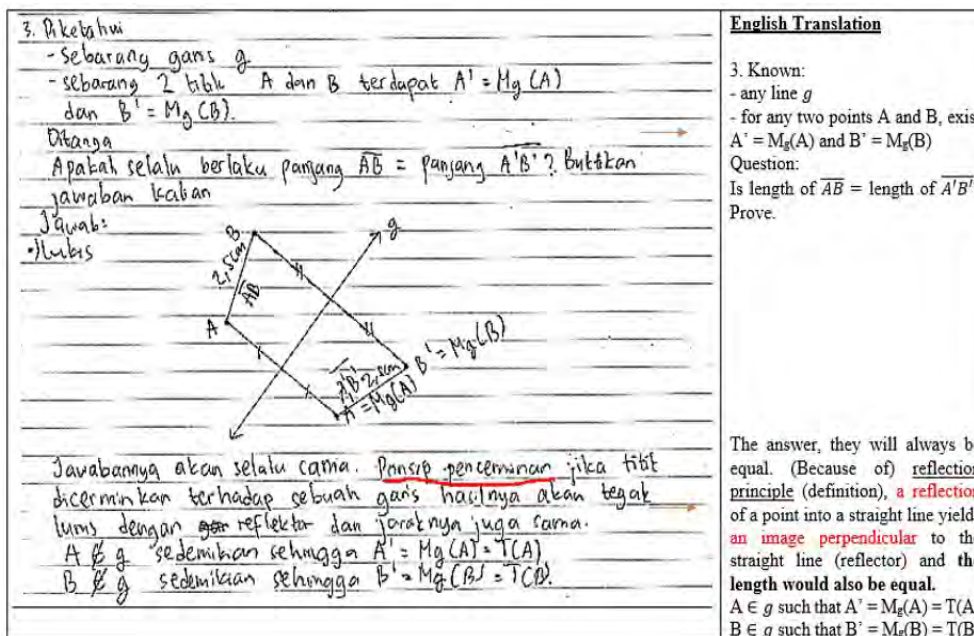 3. Diketahui
- Sebarang garis g
- sebarang 2 titik A dan B terdapat A' = Mg(A)
dan B' = Mg(B).
Ditanya
Apakah selalu berlaku panjang AB = panjang A'B'? Buktikan
jawaban kalian
Jawab:
B
g
2,5cm
AB
A
B' = Mg(B)
A'B' 2,5cm
A' = Mg(A)
Jawabannya akan selalu cama. Prinsip pencerminan jika titit
dicerminkan terhadap sebuah garis hasilnya akan tegak
lurus dengan reflektor dan jaraknya juga sama.
A ∉ g sedemikian sehingga A' = Mg(A) = T(A)
B ∉ g sedemikian sehingga B' = Mg(B) = T(B).
English Translation
3. Known:
- any line g
- for any two points A and B, exis
A' = Mg(A) and B' = Mg(B)
Question:
Is length of AB = length of A'B'
Prove.
The answer, they will always b
equal. (Because of) reflection
principle (definition), a reflection
of a point into a straight line yield
an image perpendicular to the
straight line (reflector) and the
length would also be equal.
A ∈ g such that A' = Mg(A) = T(A
B ∈ g such that B' = Mg(B) = T(B